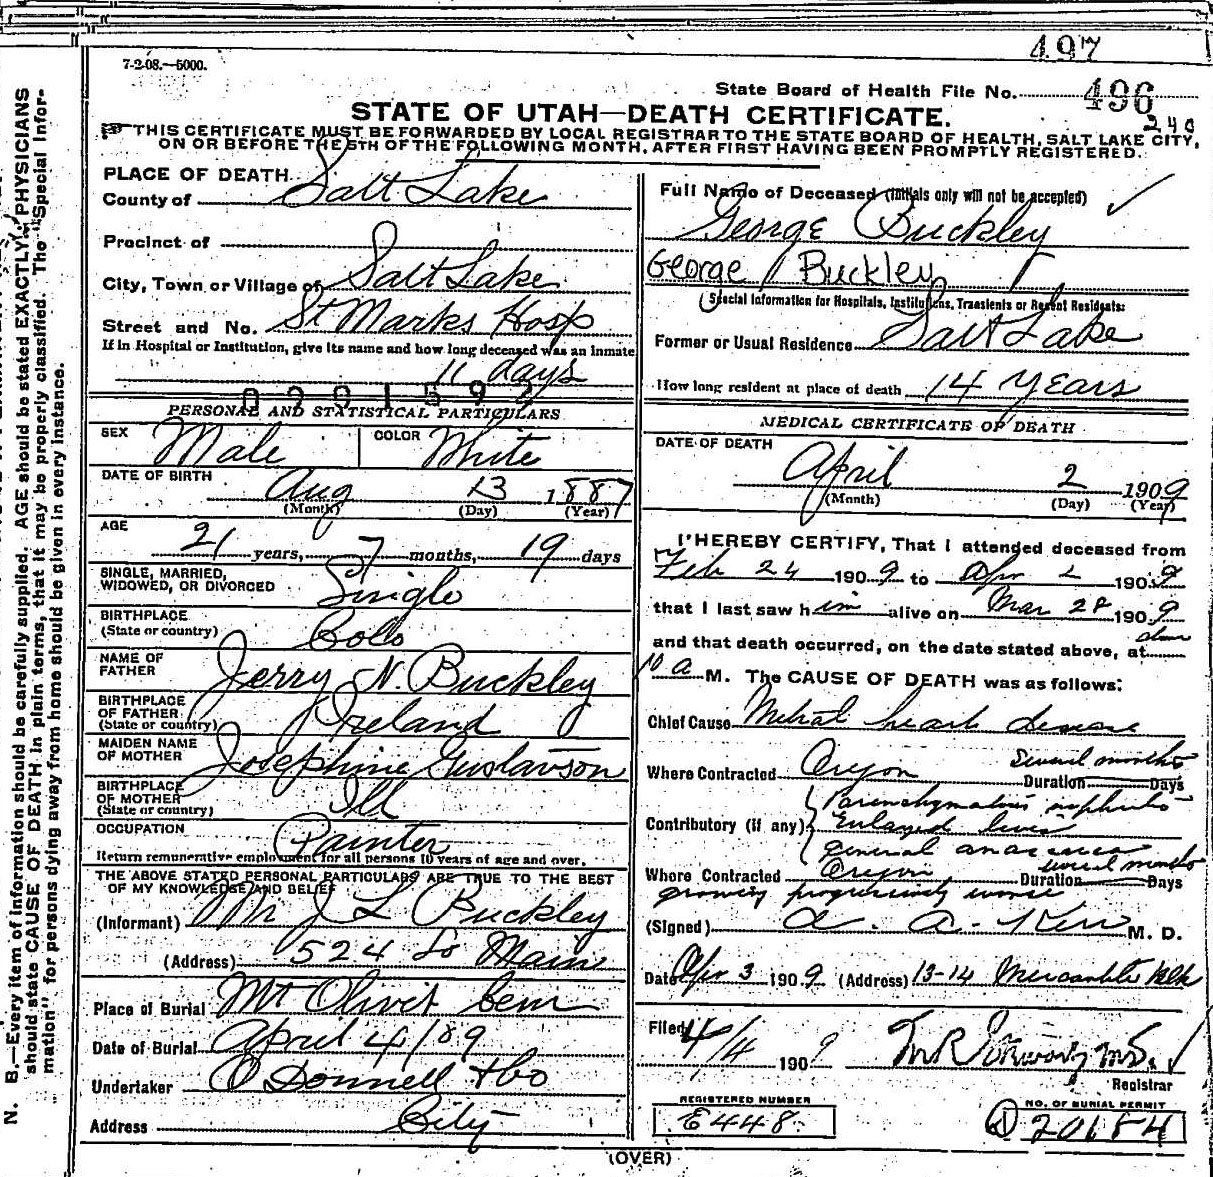 497
7-2-08.—5000.
State Board of Health File No. 496
STATE OF UTAH—DEATH CERTIFICATE.
240
THIS CERTIFICATE MUST BE FORWARDED BY LOCAL REGISTRAR TO THE STATE BOARD OF HEALTH, SALT LAKE CITY,
ON OR BEFORE THE 5TH OF THE FOLLOWING MONTH, AFTER FIRST HAVING BEEN PROMPTLY REGISTERED.
PLACE OF DEATH
County of Salt Lake
Precinct of
City, Town or Village of Salt Lake
Street and No. St Marks Hosp
If in Hospital or Institution, give its name and how long deceased was an inmate
11 days
PERSONAL AND STATISTICAL PARTICULARS
SEX Male COLOR White
DATE OF BIRTH Aug 13 1887
(Month) (Day) (Year)
AGE
21 years, 7 months, 19 days
SINGLE, MARRIED,
WIDOWED, OR DIVORCED Single
BIRTHPLACE
(State or country) Colo
NAME OF
FATHER Jerry N. Buckley
BIRTHPLACE
OF FATHER
(State or country) Ireland
MAIDEN NAME
OF MOTHER Josephine Gustavson
BIRTHPLACE
OF MOTHER
(State or country) Ill
OCCUPATION Painter
Return remunerative employment for all persons 10 years of age and over.
THE ABOVE STATED PERSONAL PARTICULARS ARE TRUE TO THE BEST
OF MY KNOWLEDGE AND BELIEF
(Informant) Mr J L Buckley
(Address) 524 So Main
Place of Burial Mt Olivet Cem
Date of Burial April 4/09
Undertaker O'Donnell & Co
Address City
Full Name of Deceased (initials only will not be accepted)
George Buckley
George Buckley
(Special Information for Hospitals, Institutions, Transients or Recent Residents:
Former or Usual Residence Salt Lake
How long resident at place of death 14 years
MEDICAL CERTIFICATE OF DEATH
DATE OF DEATH
April 2 1909
(Month) (Day) (Year)
I HEREBY CERTIFY, That I attended deceased from
Feb 24 1909 to Apr 2 1909
that I last saw him alive on Mar 28 1909
and that death occurred, on the date stated above, at about
10 a M. The CAUSE OF DEATH was as follows:
Chief Cause Mitral heart disease
Where Contracted Oregon Several months
Duration Days
Contributory (if any) Parenchymatous nephritis
Enlarged liver
General anasarca
Where Contracted Oregon Duration several months Days
growing progressively worse
(Signed) A. A. Kerr M. D.
Date Apr 3 1909 (Address) 13-14 Mercantile Blk
Filed 4/4 1909
Registrar
REGISTERED NUMBER
E448
NO. OF BURIAL PERMIT
D 20184
(OVER)
N. B.—Every item of information should be carefully supplied. AGE should be stated EXACTLY. PHYSICIANS
should state CAUSE OF DEATH in plain terms, that it may be properly classified. The "Special Infor-
mation" for persons dying away from home should be given in every instance.